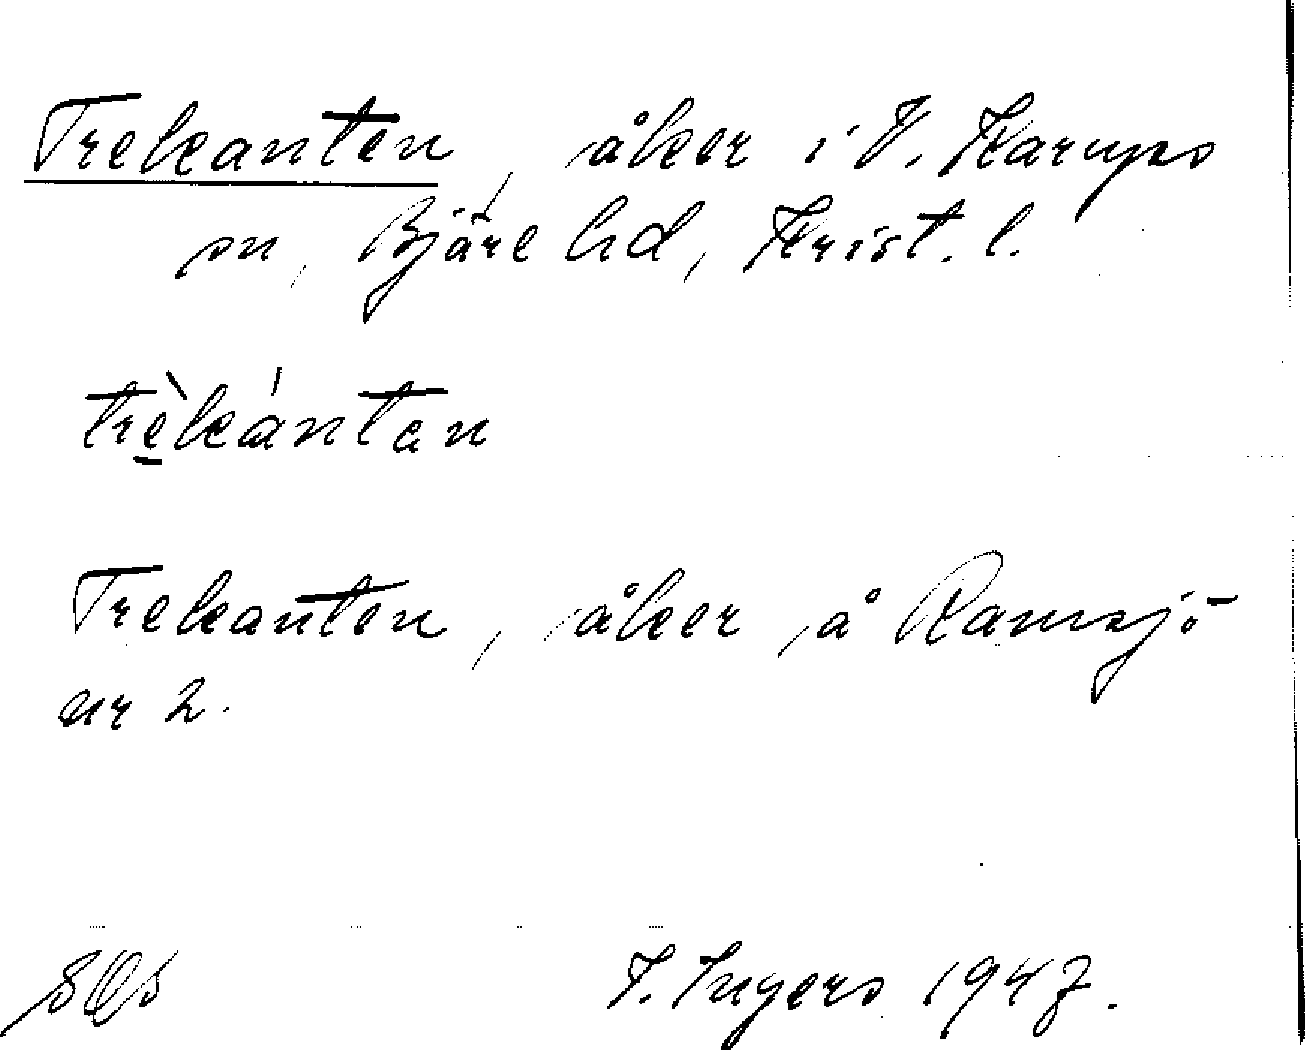 Trekanten, åker i V. Karups
sn, Bjäre hd, Krist. l.
trè̱kántan
Trekanten, åker å Ramsjö
nr 2.
I. Ingers 1947.